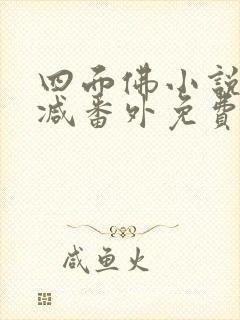 四面佛小説
减番外免費
咸鱼火